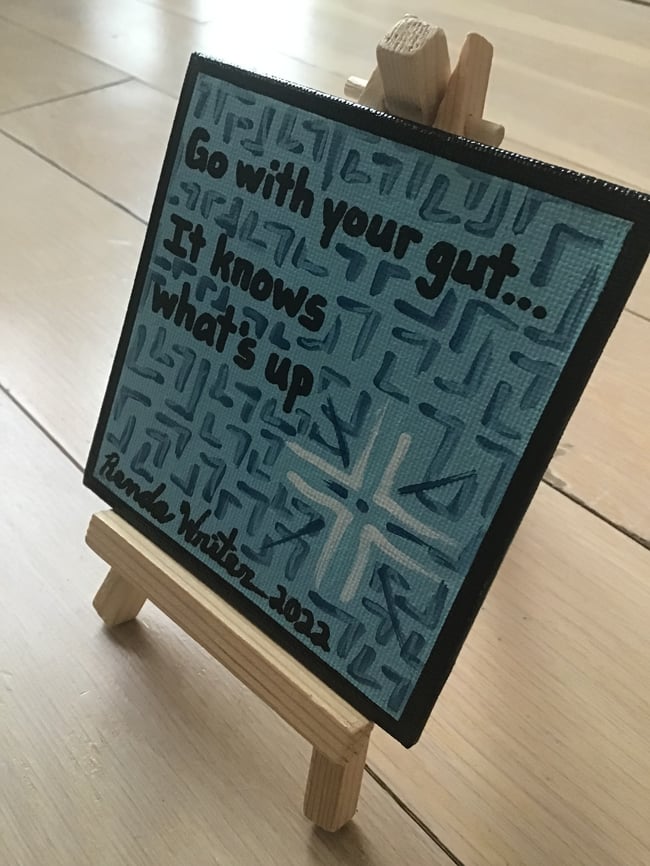 Go with your gut...
It knows
what's up
Renda Writer 2022